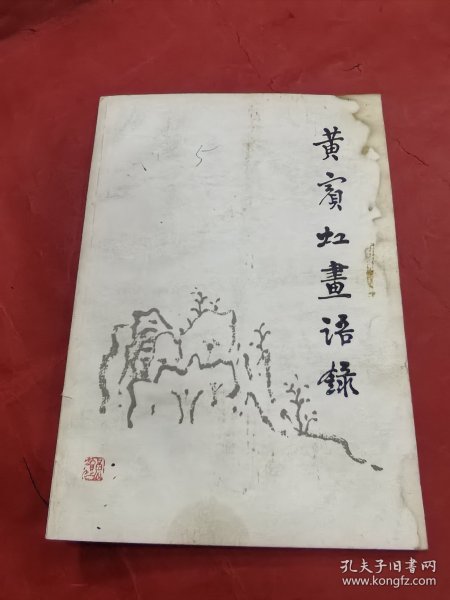 黄賓虹畫語錄
5
孔夫子旧书网
www.kongfz.com